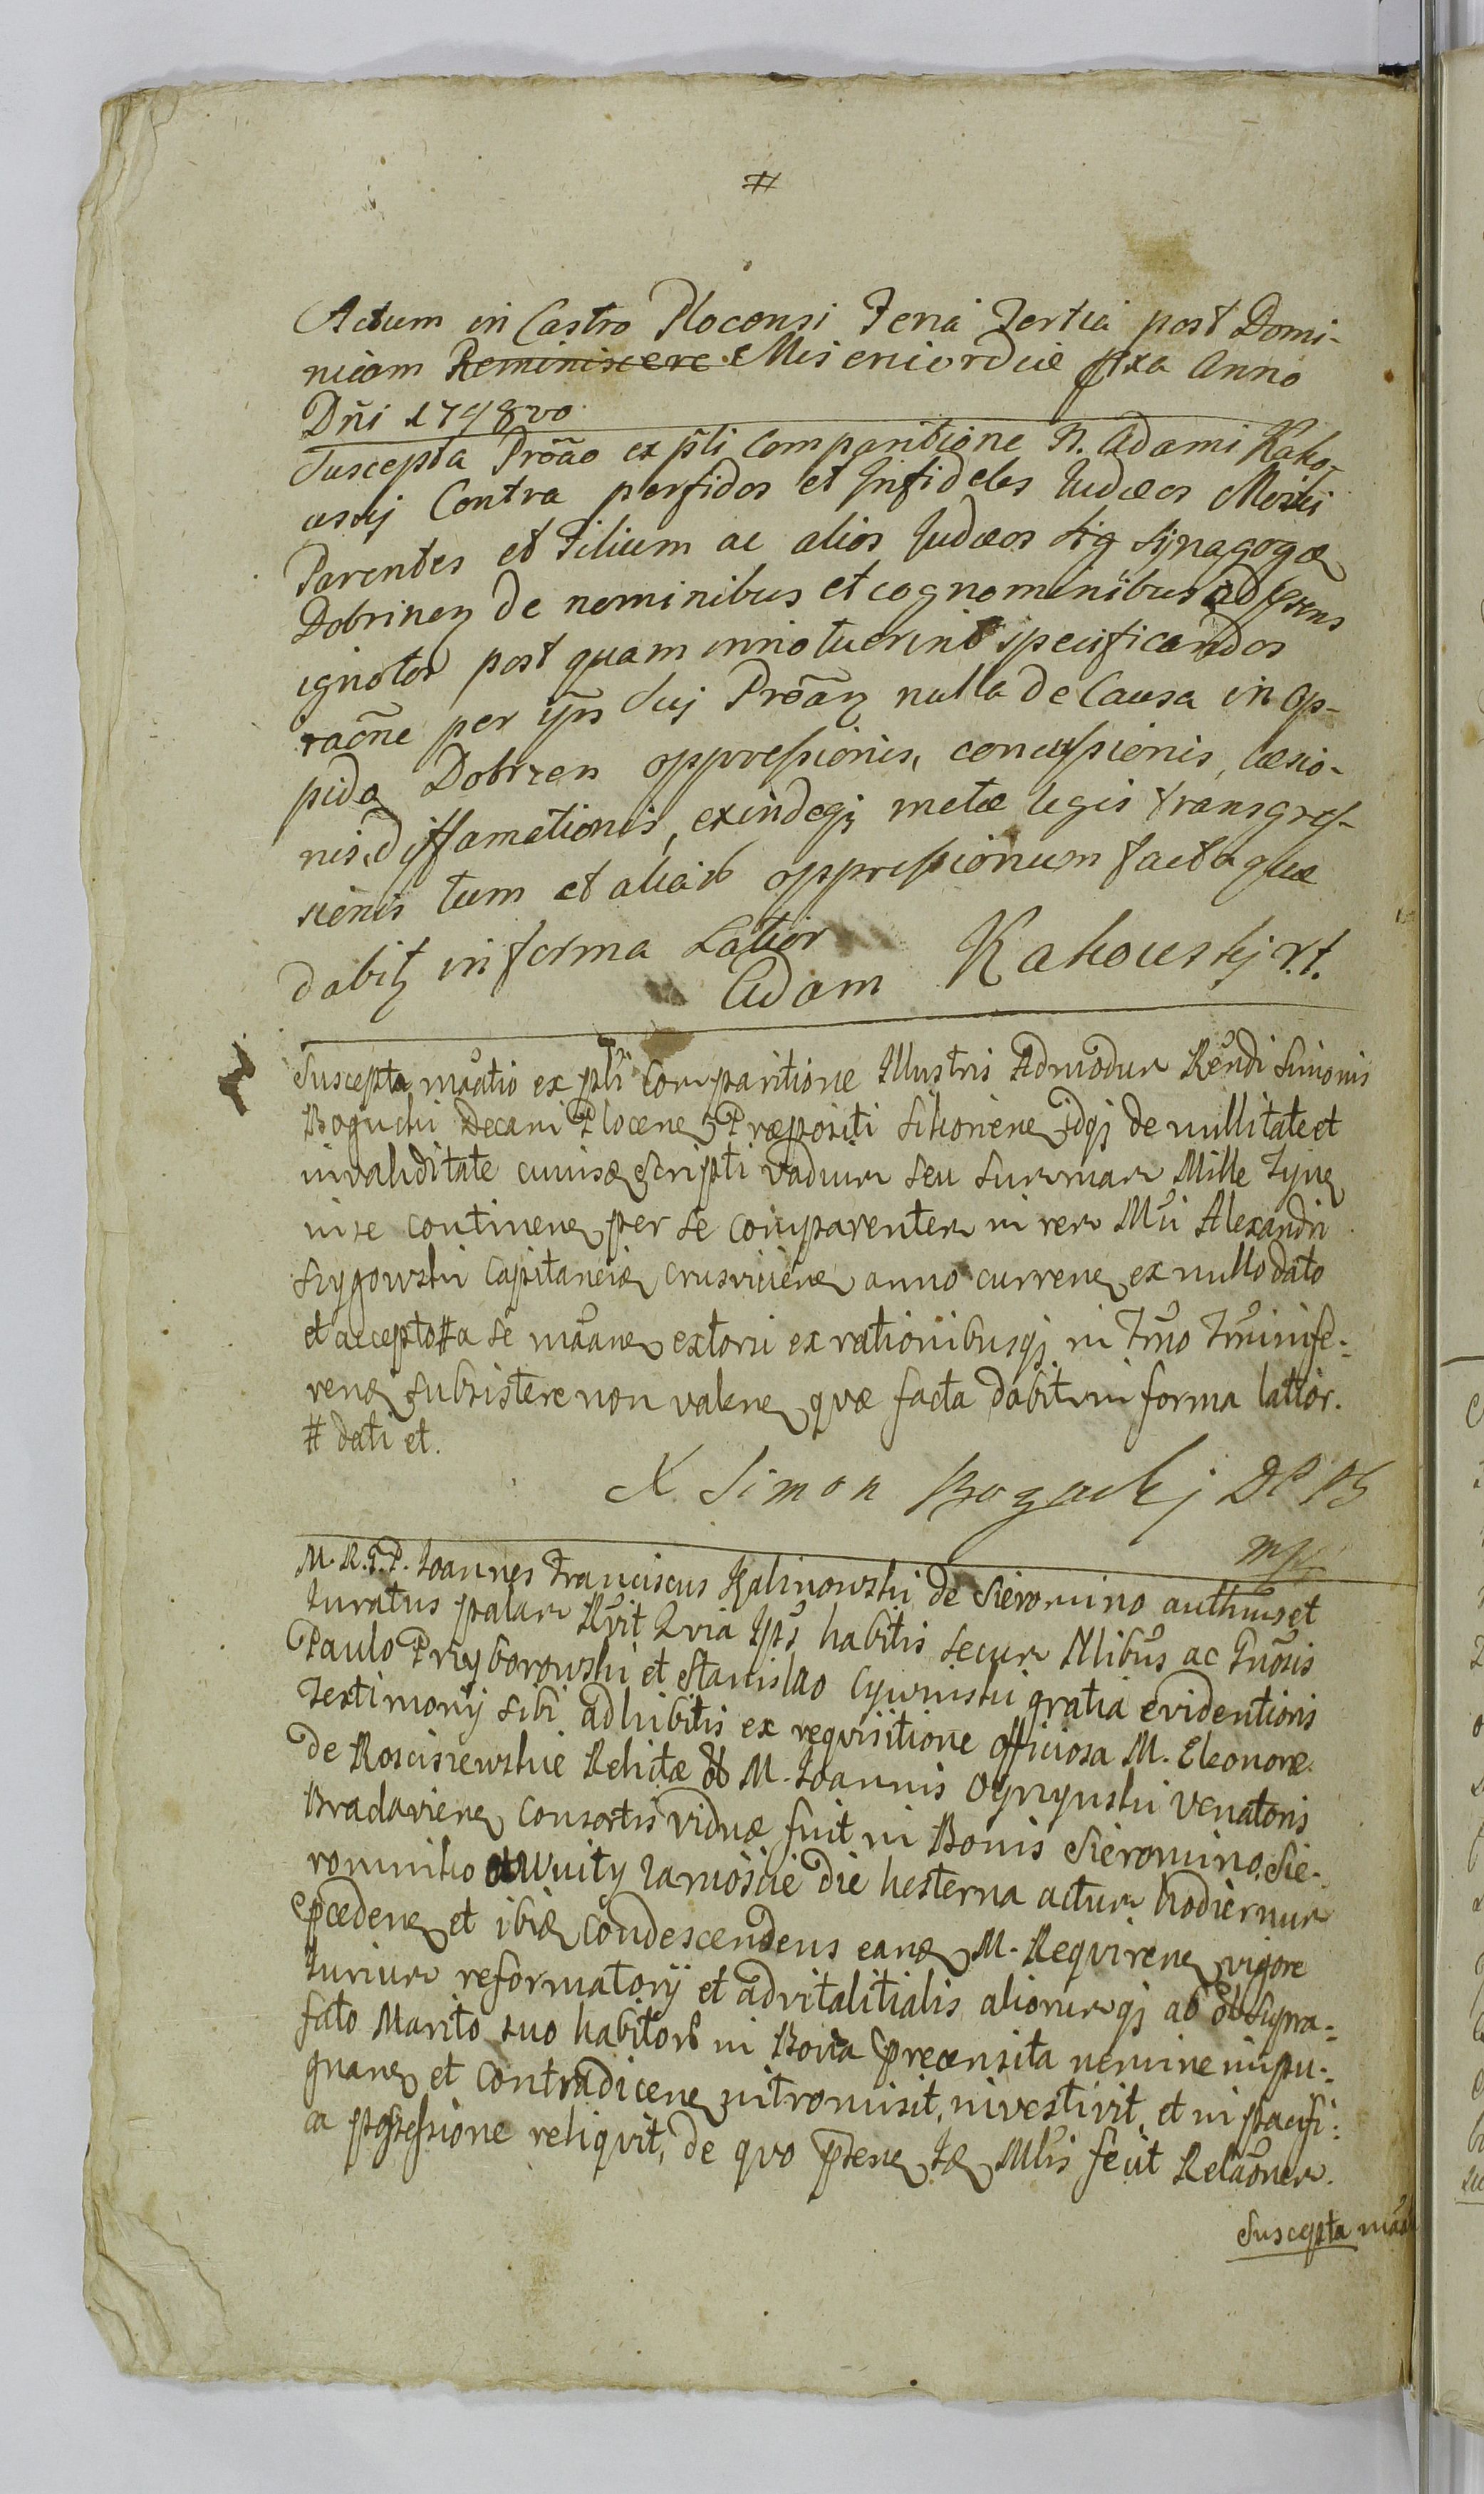 #
Actum in Castro Ploconsi Feria Tertia post Domi-
nicam Reminiscere Misericordiæ pxa Anno
Dñi 1748vo
Suscepta Prõao ex pñli Comparitione N. Adami Kako-
uskj Contra perfidos et Infideles Judæos Moski
Parentes et Filium ac alios Judæos Sig Synagogæ
Dobrinen de nominibus et cognominibus ad psens
ignotos post quam innotuerint specificandos
raõne per ips Suj Prõan nulla de Causa in Op-
pido Dobrzen oppressionis, concussionis, læsio-
nis, diffamationis, exindeqj metæ legis transgres-
sionis tum et aliar oppressionum factaquæ
dabitz in forma Latior
Adam Kakouskj r.t.
Suscepta mãatio ex pñli Comparitione Illustris Admodum Rẽndi Simonis
Bogucki Decani Plocen Præpositi Sikorien idqj de nullitate et
invaliditate cuiusq Scripti vadium seu summam Mille Tyn
in se continen per se comparentem in rem Mci Alexandri
Szygowski Capitaneid Crusvicien anno curren ex nullo dato
et accepto # a se mãan extorsi ex rationibusqj in Tmo Tminife-
ren subsistere non valen quæ facta dabitur in forma latior.
# dati et.
X Simon Boguckj DP PS
mp
M. R. G. P. Joannes Franciscus Kalinowski de Sieromino authũs et
Juratus palam Rvit Quia Ips habitis secum Nlibus ac Gnõsis
Paulo Przyborowski et Stanislao Cywinski gratia evidentioris
Testimonij sibi adhibitis ex requisitione officiosa M. Eleonoræ
de Rosciszewskie Relictæ M. Joannis Ojrzynski Venatoris
Bradavien Consortis viduæ fuit in Bonis Sieromino, Sie-
rominko Zamoscie die hesterna actum hodiernum
præceden et ibid Condescendens eand M. Requiren vigore
Jurium reformatorij et advitalitialis aliorumqj ab supra-
fato Marito suo habitor in Bona præcensita nemine impu-
gnan et Contradicen intromisit, investivit, et in pacifi-
ca possessione reliquit, de quo psen Id Mlis fecit Relaõnem.
Suscepta mãa